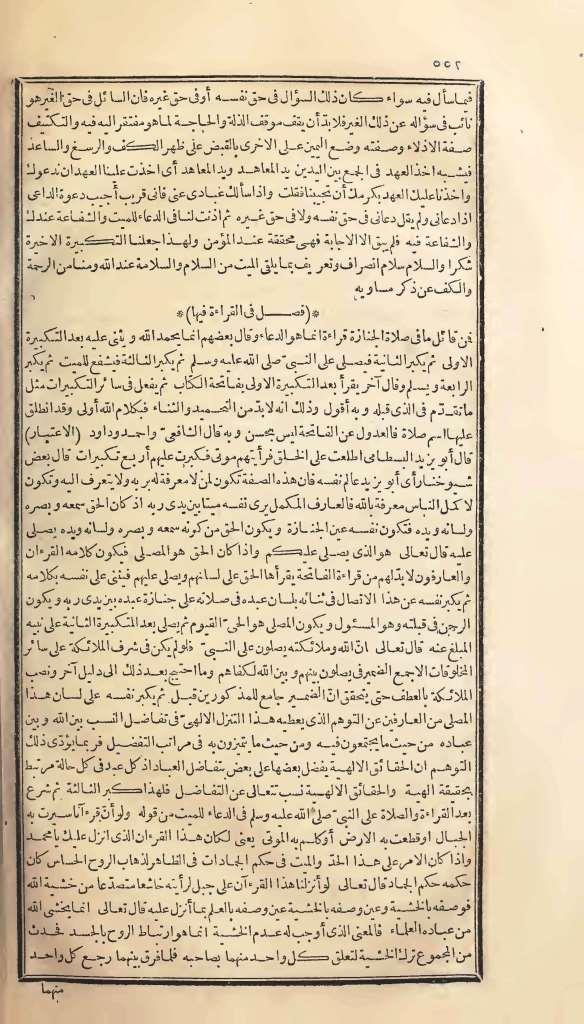 ٥٥٢
فيما سأل فيه سواء كان ذلك السؤال في حق نفسه أو في حق غيره فان السائل في حق الغير هو
نائب في سؤاله عن ذلك الغير فلا بد أن يقف موقف الذلة والحاجة لما هو مفتقر اليه فيه والتكتيف
صفة الاذلاء وصفته وضع اليمين على الاخرى بالقبض على ظهر الكف والرسغ والساعد
فيشبه اخذ العهد في الجمع بين اليدين يد المعاهد ويد المعاهد أي اخذت علينا العهد ان ندعوك
واخذنا عليك العهد بكرمك أن تجيبنا فقلت واذا سألك عبادي عني فاني قريب أجيب دعوة الداعي
اذا دعاني ولم يقل دعاني في حق نفسه ولا في حق غيره ثم اذنت لنا في الدعاء للميت والشفاعة عندك
والشفاعة فيه فلم يبق الا الاجابة فهي محققة عند المؤمن ولهذا جعلنا التكبيرة الاخيرة
شكرا والسلام سلام انصراف وتعريف بما يلقى الميت من السلام والسلامة عند الله ومنا من الرحمة
والكف عن ذكر مساويه
*(فصل في القراءة فيها)*
فمن قائل ما في صلاة الجنازة قراءة انما هو الدعاء وقال بعضهم انما يحمد الله ويثني عليه بعد التكبيرة
الاولى ثم يكبر الثانية فيصلي على النبي صلى الله عليه وسلم ثم يكبر الثالثة فيشفع للميت ثم يكبر
الرابعة ويسلم وقال آخر يقرأ بعد التكبيرة الاولى بفاتحة الكتاب ثم يفعل في سائر التكبيرات مثل
ما تقدم في الذي قبله وبه أقول وذلك انه لا بد من التحميد والثناء فبكلام الله أولى وقد انطلق
عليها اسم صلاة فالعدول عن الفاتحة ليس بحسن وبه قال الشافعي واحمد وداود (الاعتبار)
قال أبو يزيد البسطامي اطلعت على الخلق فرأيتهم موتى فكبرت عليهم أربع تكبيرات قال بعض
شيوخنا رأى أبو يزيد عالم نفسه فان هذه الصفة تكون لمن لا معرفة له بربه ولا يتعرف اليه وتكون
لا كمل الناس معرفة بالله فالعارف المكمل يرى نفسه ميتا بين يدي ربه اذ كان الحق سمعه وبصره
ولسانه ويده فتكون نفسه عين الجنازة ويكون الحق من كونه سمعه وبصره ولسانه ويده يصلى
عليه قال تعالى هو الذي يصلي عليكم واذا كان الحق هو المصلي فيكون كلامه القرءان
والعارفون لا بد لهم من قراءة الفاتحة يقرأها الحق على لسانهم ويصلي عليهم فيثني على نفسه بكلامه
ثم يكبر نفسه عن هذا الاتصال في ثنائه بلسان عبده في صلاته على جنازة عبده بين يدي ربه ويكون
الرحمن في قبلته وهو المسئول ويكون المصلي هو الحي القيوم ثم يصلي بعد التكبيرة الثانية على نبيه
المبلغ عنه قال تعالى ان الله وملائكته يصلون على النبي فلو لم يكن في شرف الملائكة على سائر
المخلوقات الا جمع الضمير في يصلون بينهم وبين الله لكفاهم وما احتيج بعد ذلك الى دليل آخر ونصب
الملائكة بالعطف حتى يتحقق ان الضمير جامع للمذكورين قبل ثم يكبر نفسه على لسان هذا
المصلي من العارفين عن التوهم الذي يعطيه هذا التنزل الالهي في تفاضل النسب بين الله وبين
عباده من حيث ما يجتمعون فيه ومن حيث ما يتميزون به في مراتب التفضيل فربما يؤدي ذلك
التوهم ان الحقائق الالهية يفضل بعضها على بعض بتفاضل العباد اذ كل عبد في كل حالة مرتبط
بحقيقة الهية والحقائق الالهية نسب تتعالى عن التفاضل فلهذا كبر الثالثة ثم شرع
بعد القراءة والصلاة على النبي صلى الله عليه وسلم في الدعاء للميت من قوله ولو أن قرءانا سيرت به
الجبال او قطعت به الارض أو كلم به الموتى يعني لكان هذا القرءان الذي انزل عليك يا محمد
واذا كان الامر على هذا الحد والميت في حكم الجمادات في الظاهر لذهاب الروح الحساس كان
حكمه حكم الجماد قال تعالى لو أنزلنا هذا القرءآن على جبل لرأيته خاشعا متصدعا من خشية الله
فوصفه بالخشية وعين وصفه بالخشية عين وصفه بالعلم بما أنزل عليه قال تعالى انما يخشى الله
من عباده العلماء فالمعنى الذي أوجب له عدم الخشية انما هو ارتباط الروح بالجسد فحدث
من المجموع ترك الخشية لتعلق كل واحد منهما بصاحبه فلما فرق بينهما رجع كل واحد
منهما